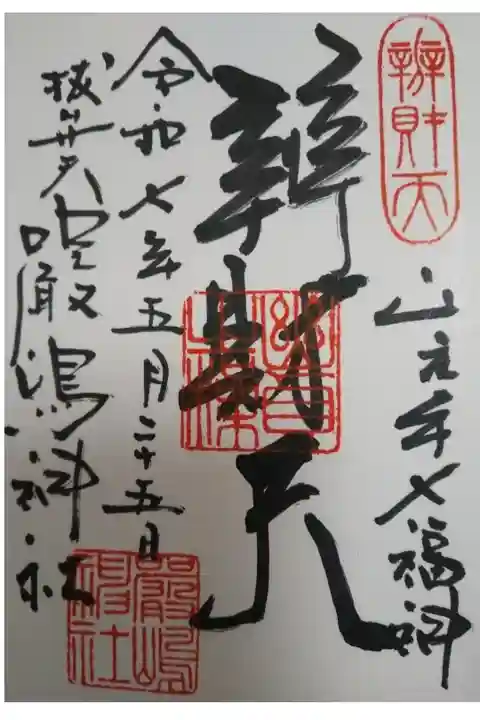 辨財天
山之手七福神
辨財天
令和七年五月二十五日
抜弁天 嚴嶋神社
嚴嶋神社